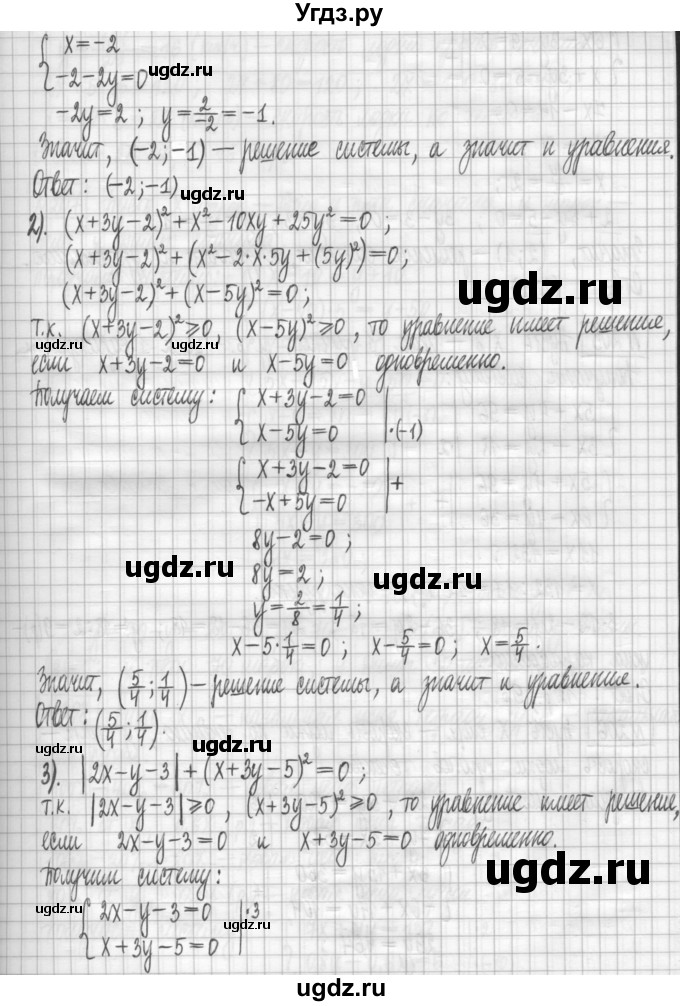 Угдз.ру
{ x=-2
{ -2-2y=0
ugdz.ru
-2y=2 ; y=2/-2=-1.
Значит, (-2;-1) – решение системы, а значит и уравнения.
Ответ: (-2;-1)
ugdz.ru ugdz.ru
2). (x+3y-2)²+x²-10xy+25y²=0 ;
(x+3y-2)²+(x²-2·x·5y+(5y)²)=0;
(x+3y-2)²+(x-5y)²=0 ;
ugdz.ru
т.к. (x+3y-2)²≥0, (x-5y)²≥0, то уравнение имеет решение,
ugdz.ru ugdz.ru
если x+3y-2=0 и x-5y=0 одновременно.
Получаем систему: { x+3y-2=0 |
{ x-5y=0 | ·(-1)
{ x+3y-2=0 | +
{ -x+5y=0 |
8y-2=0 ;
ugdz.ru ugdz.ru
8y=2 ;
y=2/8=1/4 ;
x-5·1/4=0 ; x-5/4=0 ; x=5/4 .
Значит, (5/4;1/4) – решение системы, а значит и уравнения.
Ответ: (5/4;1/4).
ugdz.ru ugdz.ru
3). |2x-y-3|+(x+3y-5)²=0 ;
т.к. |2x-y-3|≥0, (x+3y-5)²≥0, то уравнение имеет решение,
если 2x-y-3=0 и x+3y-5=0 одновременно.
ugdz.ru
Получим систему:
ugdz.ru ugdz.ru
{ 2x-y-3=0 | ·3
{ x+3y-5=0 |
ugdz.ru